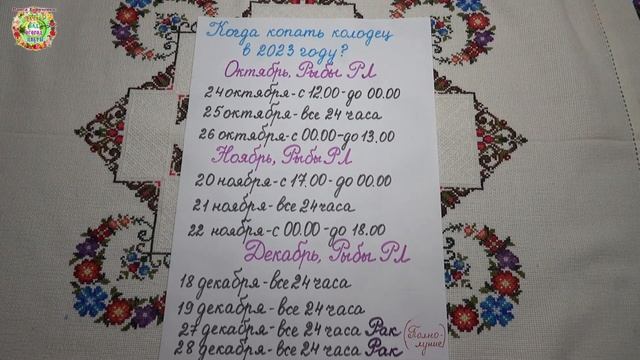 Когда копать колодец
в 2023 году?
Октябрь, Рыбы РЛ
24 октября-с 12.00-до 00.00
25 октября-все 24 часа
26 октября-с 00.00-до 13.00
Ноябрь, Рыбы РЛ
20 ноября-с 17.00-до 00.00
21 ноября-все 24 часа
22 ноября-с 00.00-до 18.00
Декабрь, Рыбы РЛ
18 декабря-все 24 часа
19 декабря-все 24 часа
27 декабря-все 24 часа Рак
28 декабря-все 24 часа Рак
(Полно-
луние)